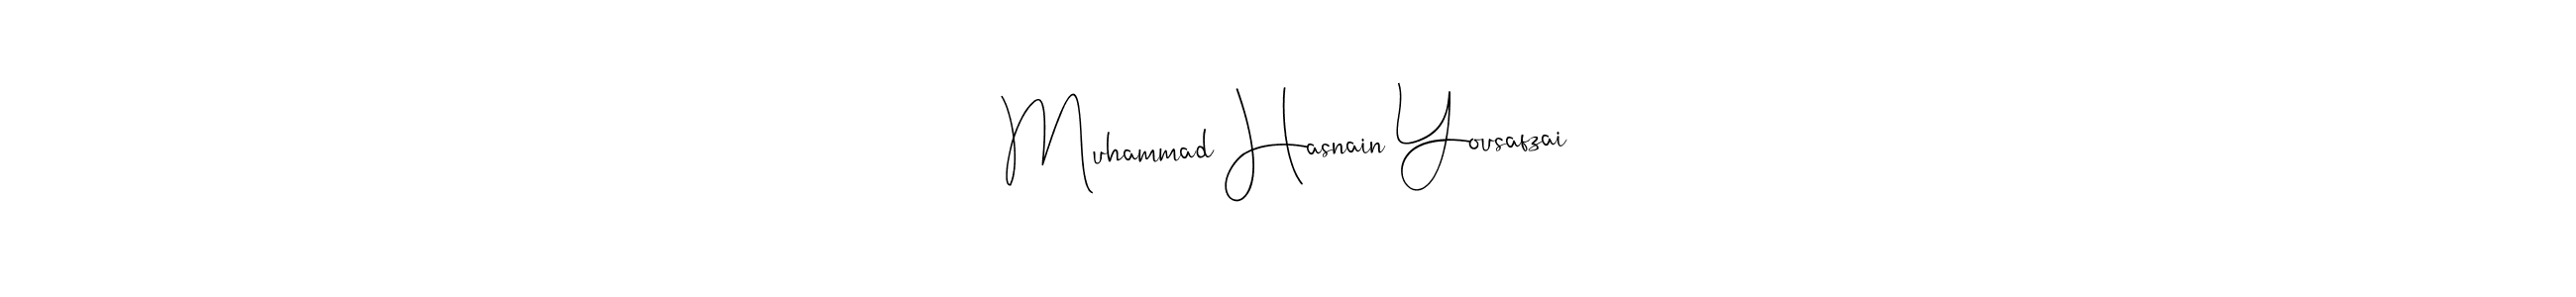 Muhammad Hasnain Yousafzai